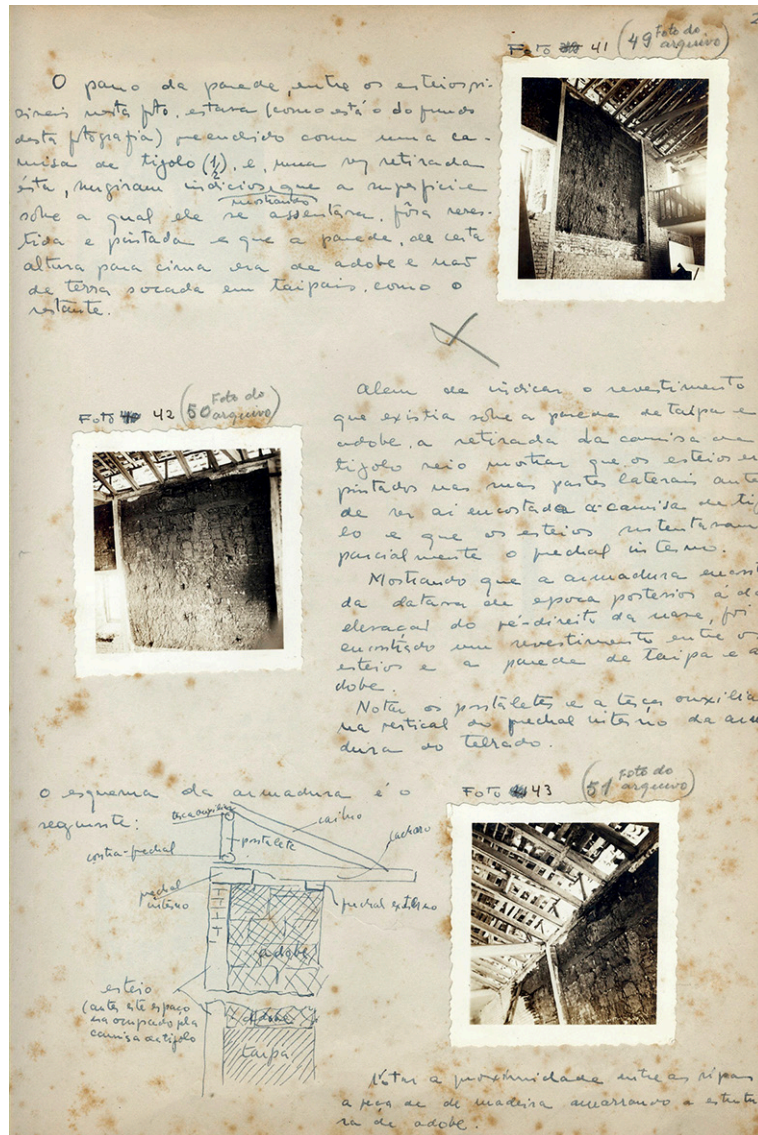 2
Foto 41 (49 Foto do arquivo)
O pano da parede, entre os esteios
nesta foto, estava (como está o do fundo
desta fotografia) preenchido com uma ca-
misa de tijolo (1/2), e, uma vez retirada
ésta, surgiram indicios mostrando que a superficie
sobre a qual ele se assentara, fôra reves-
tida e pintada e que a parede, de certa
altura para cima era de adobe e não
de terra socada em taipais, como o
restante.
Foto 42 (50 Foto do arquivo)
Alem de indicar o revestimento
que existia sôbre a parede de taipa e
adobe, a retirada da camisa de
tijolo veio mostrar que os esteios
pintados nas suas partes laterais ante
de ser ai encostada a camisa de tij
lo e que os esteios sustentavam
parcialmente o frechal interno.
Mostrando que a armadura encont
da datava de epoca posterior á da
elevação do pé-direito da nave, foi
encontrado um revestimento entre os
esteios e a parede de taipa e a
dobe.
Notar os postaletes e a terça auxilia
na vertical do frechal interno da arm
dura do telhado.
O esquema da armadura é o
seguinte:
Foto 43 (51 Foto do arquivo)
terça auxiliar
caibro
postalete
cachorro
contra-frechal
frechal interno
frechal externo
adobe
esteio
(antes este espaço
era ocupado pla
camisa de tijolo
adobe
taipa
Notar a proximidade entre as ripas
a peça de de madeira amarrando a estrutu
ra de adobe.